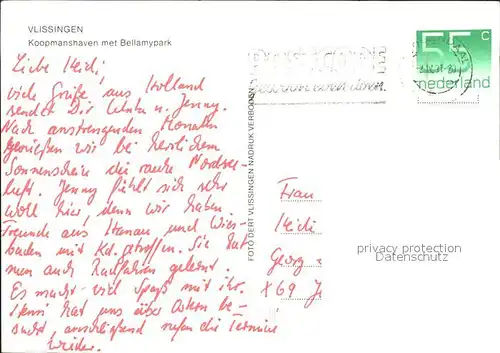 VLISSINGEN
Koopmanshaven met Bellamypark
Liebe Heidi,
viele Grüße aus Holland
sendet Dir u. Jenny.
Nach anstrengenden Monaten
genießen wir bei herrlichem
Sonnenschein die rauhe Nordsee-
luft. Jenny fühlt sich sehr
wohl hier, denn wir haben
Freunde aus Hanau und Wies-
baden mit Kd. getroffen. Sie hat
nun auch Radfahren gelernt.
Es macht viel Spaß mit ihr.
Henri hat uns über Ostern be-
sucht, anschließend rufen die Termine
wieder.
FOTO DERT VLISSINGEN NADRUK VERBODEN
55 c
nederland
Frau
Heidi
Georg
X 69 J
privacy protection
Datenschutz